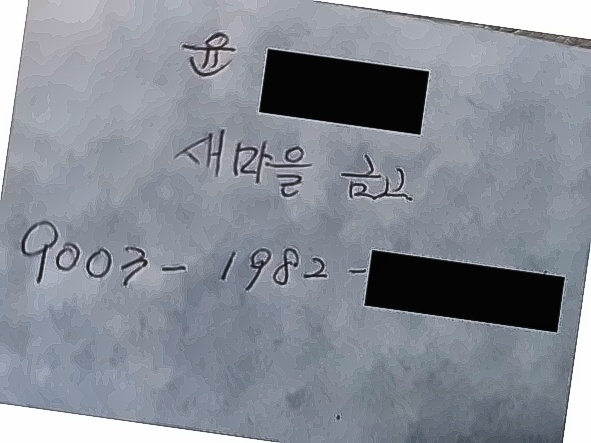 윤
새마을 금고
9003- 1982 -